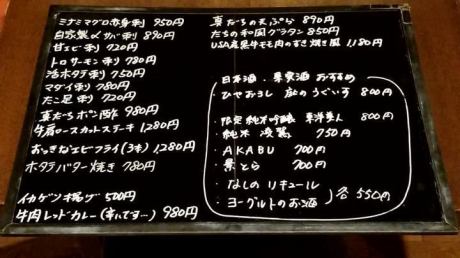 ミナミマグロ赤身刺 950円
自家製〆サバ刺 890円
甘エビ刺 720円
トロサーモン刺 780円
活ホタテ刺 750円
マダイ刺 780円
たこ足刺 720円
真だちポン酢 980円
牛肩ロースカットステーキ 1280円
おっきなエビフライ(3本) 1280円
ホタテバター焼き 780円
イカゲソ揚げ 500円
牛肉レッドカレー(辛いです…) 980円
真だちの天ぷら 890円
たちの和風グラタン 850円
USA産黒牛モモ肉のすき焼き風 1,180円
日本酒・果実酒 おすすめ
・ひやおろし 庭のうぐいす 800円
・限定 純米吟醸 東洋美人 800円
・純米 凌駕 750円
・AKABU 700円
・景とら 700円
・なしのリキュール
・ヨーグルトのお酒 各550円